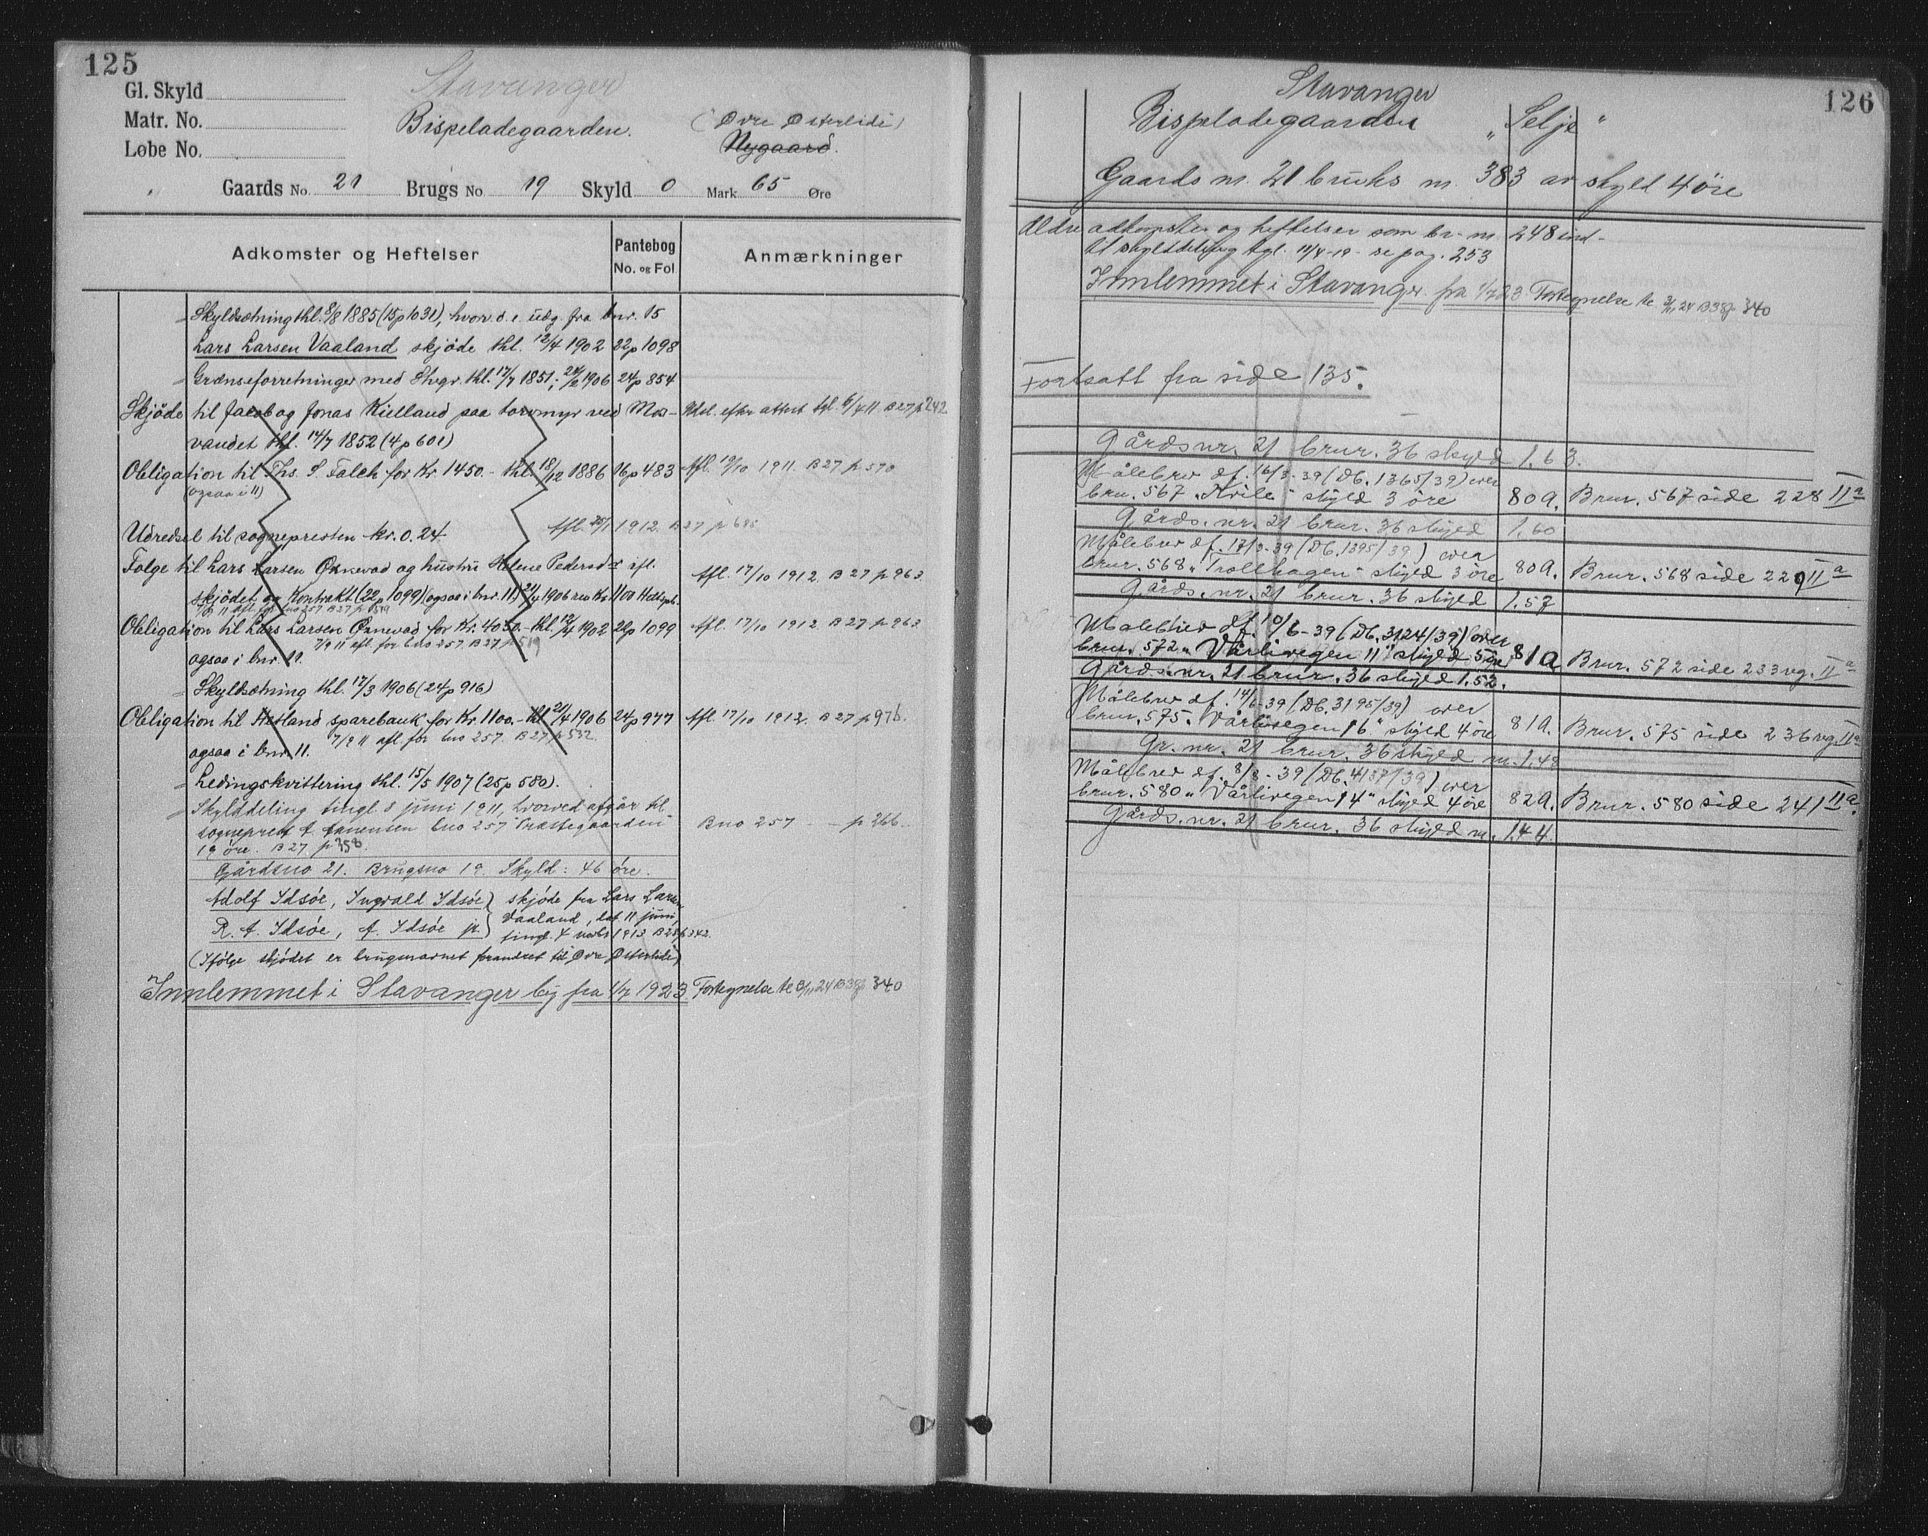 125
Gl. Skyld
Stavanger
Matr. No.
Bispeladegaarden.
(Øvre Østerlide)
Løbe No.
Nygaard.
Gaards No. 21 Brugs No 19 Skyld 0 Mark 65 Øre
Adkomster og Heftelser
Pantebog No. og Fol
Anmærkninger
Skyldsætning thl. 8/8 1885 (15p1031), hvorv. d. e. udg. fra bnr. 15
Lars Larsen Vaaland skjøde thl. 12/4 1902 22p1098
Grænseforretninger med Stvgr. thl. 17/7 1851; 24/2 1906 24p854
Skjøde til Jacob og Jonas Kielland paa torvmyr ved Mos- Udsl. efter attest tgl. 6/4 11 B27p242
vandet thl. 14/7 1852 (4p601)
Obligation til Ths. S. Falck for Kr. 1450.- thl. 18/12 1886 16p483 Afl. 19/10 1911. B27 p570
(ogsaa i 11)
Udredsel til sognepresten kr. 0.24. Afl. 1912. B27 p
Følge til Lars Larsen Øknevad og hustru Helene Pedersd ifl. Afl. 17/10 1912. B27 p963.
skjødet og Kontrakt (22p1099) ogsaa i bnr. 11. 21/4 1906 Kr. 1100 Hetl.spb.
7/9 11 afl. for bno 257 B27 p519
Obligation til Lars Larsen Øknevad for Kr. 4050.- thl. 12/4 1902 22p1099 Afl. 17/10 1912 B27 p963
7/9 11 afl. for bno 257. B27 p519
ogsaa i bnr. 11.
Skyldsætning thl. 17/3 1906 (24p916)
Obligation til Hetland sparebank for Kr. 1100.- thl 21/4 1906 24p977 Afl 17/10 1912. B27 p976.
7/9 11 afl. for bno 257. B27 p532
ogsaa i bnr. 11.
Ledingskvittering thl. 15/5 1907 (25p580).
Skylddeling tingl. 8 juni 1911, hvorved afgår til
sogneprest A Aanensen bno 257 Præstegaarden Bno 257 p266.
19 øre. B27. p358.
Gårdsno 21. Brugsno 19. Skyld: 46 øre.
Adolf Idsøe, Ingvald Idsøe } skjøde fra Lars Larsen
Vaaland, dat 11 juni,
R. A. Idsøe, A. Idsøe jr. } tingl. 4 novbr 1913 B28p342.
(Ifølge skjødet er brugsnavnet forandret til Øvre Østerlide)
Innlemmet i Stavanger by fra 1/7 1923 Fortegnelse te 3/11 24 B38p 340
126
Stavanger
Bispeladegaarden "Selje"
Gaards nr. 21 bruks nr. 383 av skyld 4 øre
Ældre adkomster og heftelser som br. nr. 248 ind-
til skylddeling tgl. 11/4-19 - se pag. 253
Innlemmet i Stavanger fra 1/7 23 Fortegnelse te 3/11 24 B38p 340
Fortsatt fra side 135.
Gårdsnr. 21 brur. 36 skyld 1.63.
Målebrev df. 16/3-39 (Db. 1365/39) over
bru. 567 "Kvile" skyld 3 øre 809. Brur. 567 side 228 IIa
Gårds. nr. 21 brur. 36 skyld 1.60
Målebrev df. 17/3-39 (Db. 1395/39) over
brur. 568 "Trollhagen" skyld 3 øre 809. Brur. 568 side 229 IIa
Gårds. nr. 21 brur. 36 skyld 1.57
Målebrev df. 10/6-39 (Db. 3124/39) over
brur. 572 "Vårlivegen 11" skyld 5 øre 819 Brur. 572 side 233 vg. IIa
Gårds. nr. 21 brur. 36 skyld 1.52.
Målebrev df. 14/6-39 (Db. 3195/39) over
brur. 575 "Vårlivegen 16" skyld 4 øre 819. Brur. 575 side 236 vg IIa
Gr. nr. 21 brur. 36 skyld m. 1.48
Målebrev df. 8/8-39 (Db. 4137/39) over
brur. 580 "Vårlivegen 14" skyld 4 øre 829. Brur. 580 side 241 IIa.
Gårds. nr. 21 brur. 36 skyld m. 1.44.